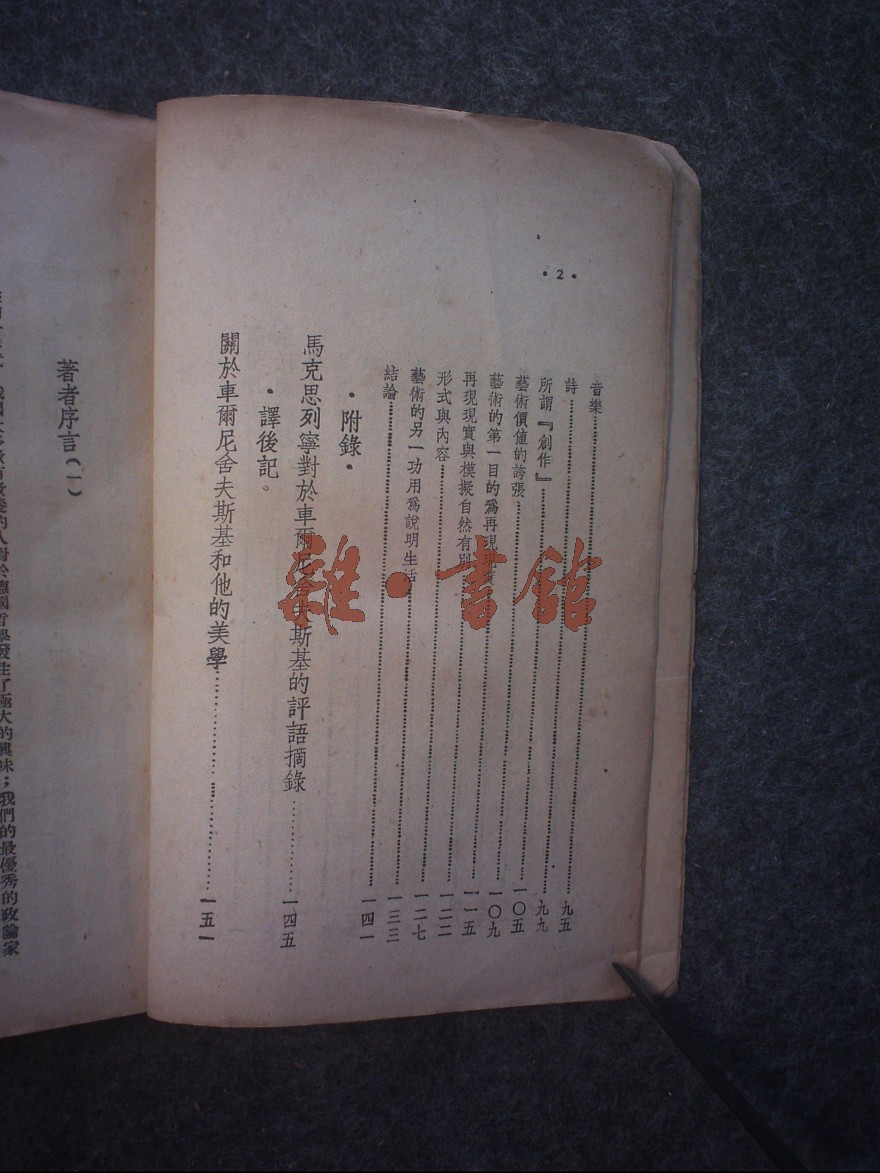 ·2·
音樂……九五
詩……九九
所謂『創作』……一〇五
藝術價值的誇張……一〇九
藝術的第一目的爲再現……一一五
再現現實與模擬自然有別……一二二
形式與內容……一二七
藝術的另一功用爲說明生活……一三三
結論……一四一
·附錄·
馬克思列寧對於車爾尼舍夫斯基的評語摘錄……一四五
·譯後記。
關於車爾尼舍夫斯基和他的美學……一五一
著者序言(一)
的人對於德國哲學發生了極大的興味；我們的最優秀的政論家
雜·書館